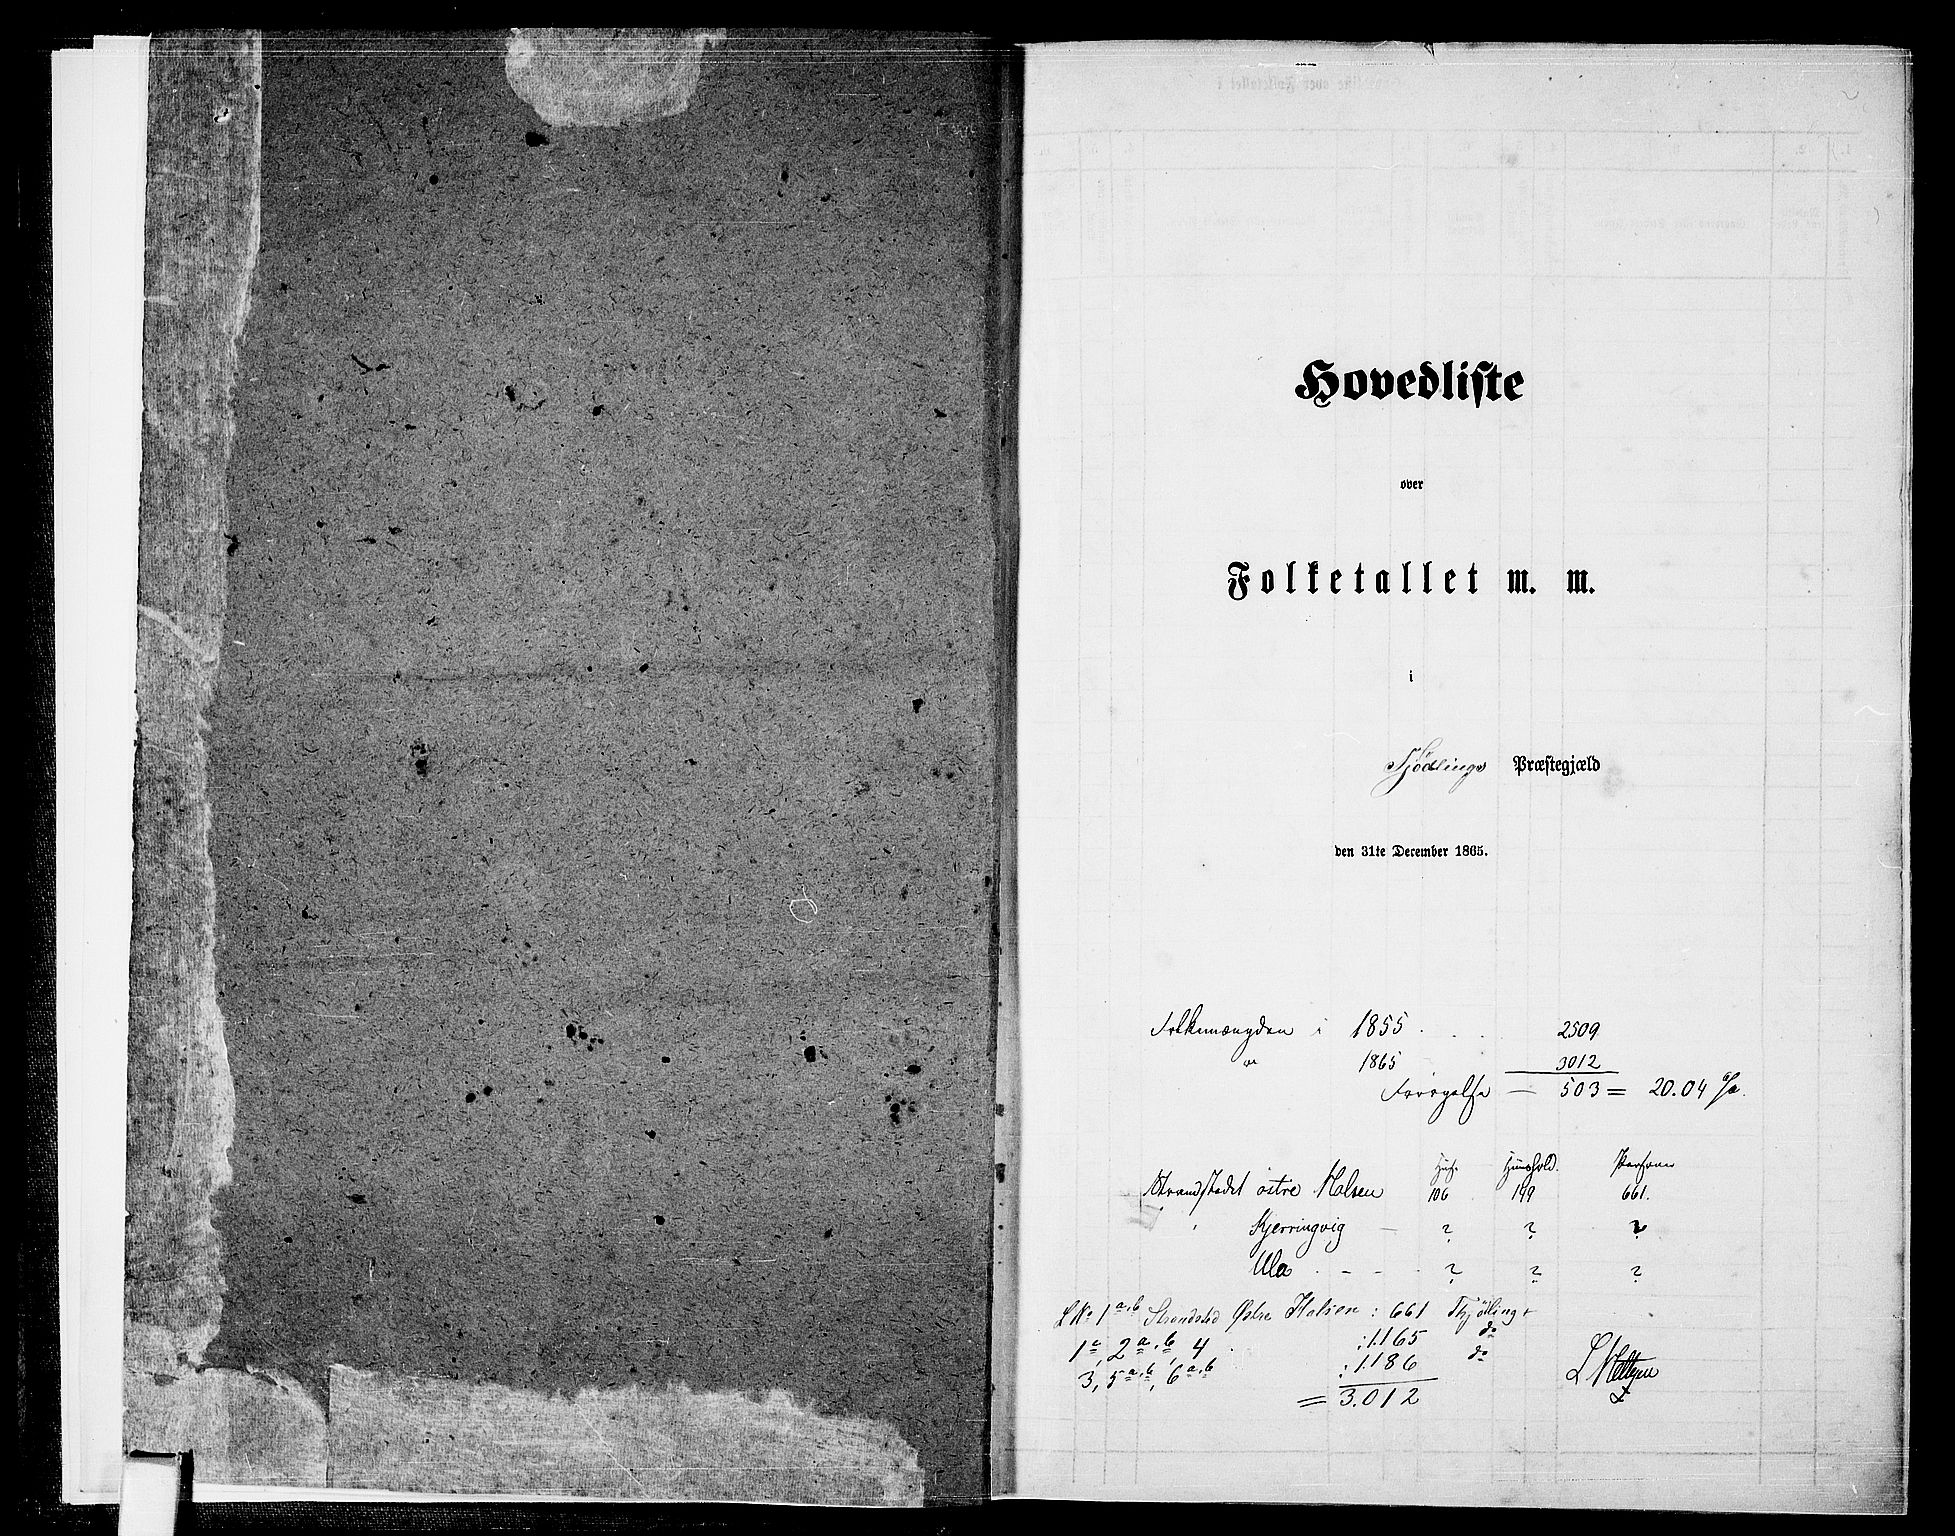 Hovedliste
over
Folketallet m. m.
i
Tjödlings Præstegjæld
den 31te December 1865.
Folkemængden i 1855 . . . . 2509
" 1865 3012
Forøgelse — 503 = 20.04 %.
Huse Huushold. Personer
Strandstedet östre Halsen 106 149 661.
" Kjerringvig — ? ? ?
Ula . - - . ? ? ?
L No 1 a,b Strandsted Östre Halsen : 661 Thjöling
1c, 2a,b, 4 . : 1.165 do
3, 5a,b, 6a,b : 1.186 do
= 3.012